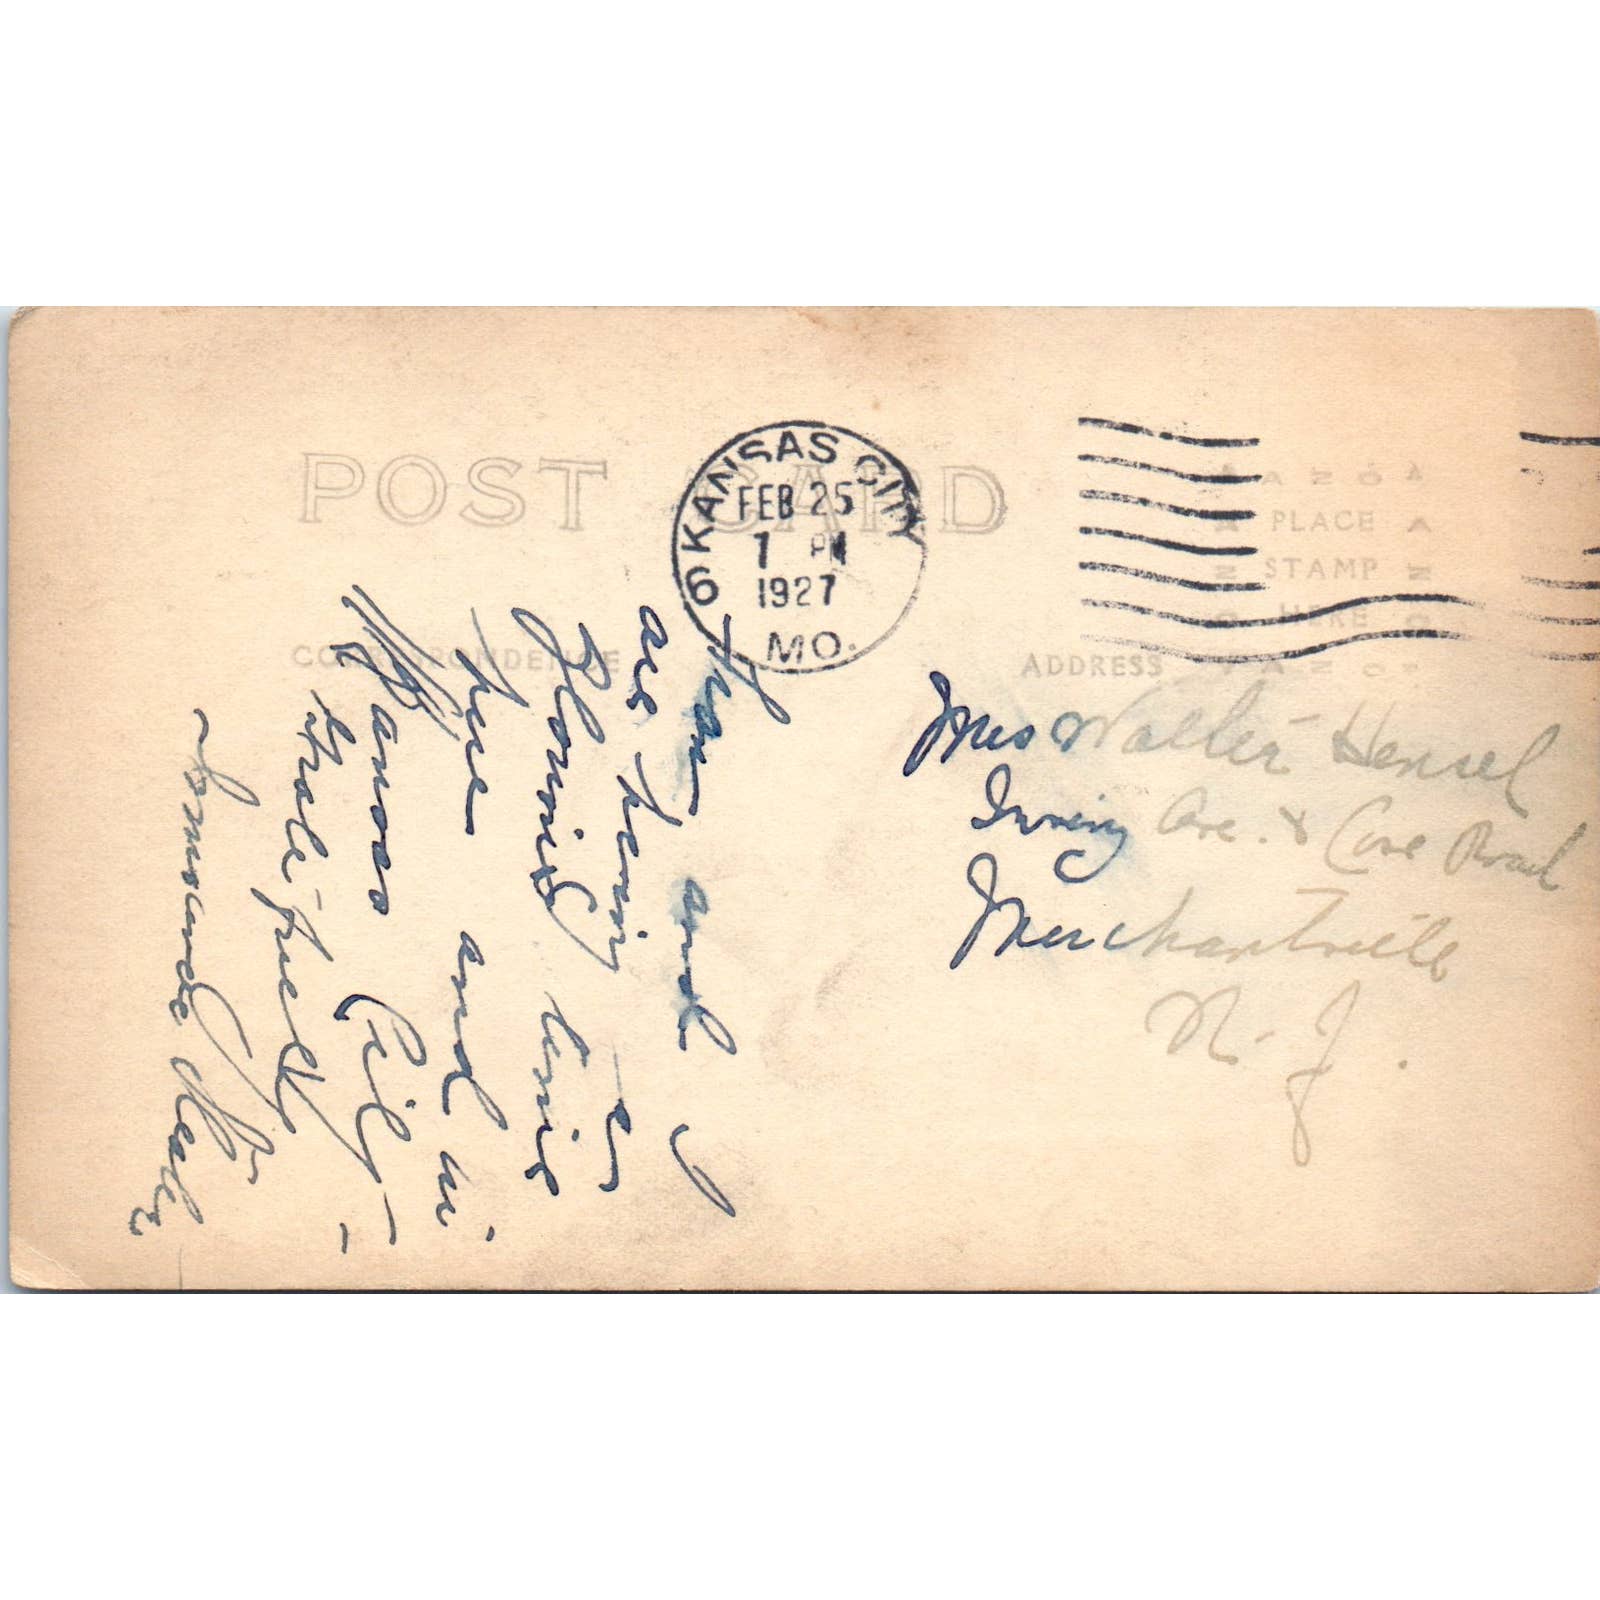 POST CARD
KANSAS CITY
FEB 25
1 PM
1927
MO.
6
PLACE
STAMP
HERE
CORRESPONDENCE
ADDRESS
Fran and I
are having a
glorious time
here and in
Kansas City -
Gratefully -
Mrs Walter Hensel
Irving Ave. & Cove Road
Merchantville
N. J.